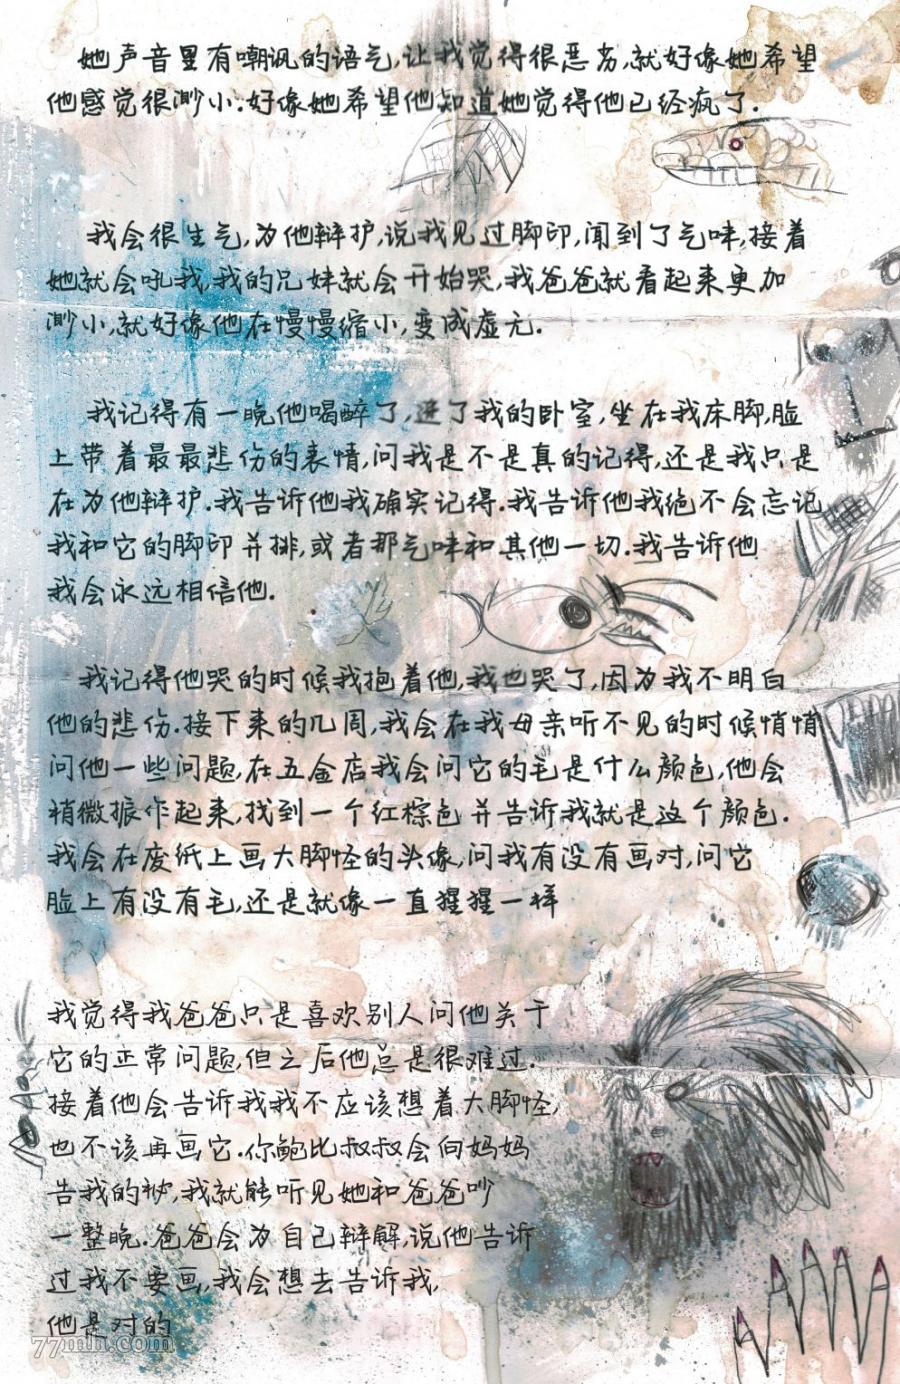 她声音里有嘲讽的语气,让我觉得很恶劣,就好像她希望
他感觉很渺小.好像她希望他知道她觉得他已经疯了.
我会很生气,为他辩护,说我见过脚印,闻到了气味,接着
她就会吼我,我的兄妹就会开始哭,我爸爸就看起来更加
渺小,就好像他在慢慢缩小,变成虚无.
我记得有一晚他喝醉了,进了我的卧室,坐在我床脚,脸
上带着最最悲伤的表情,问我是不是真的记得,还是我只是
在为他辩护.我告诉他我确实记得.我告诉他我绝不会忘记
我和它的脚印并排,或者那气味和其他一切.我告诉他
我会永远相信他.
我记得他哭的时候我抱着他,我也哭了,因为我不明白
他的悲伤.接下来的几周,我会在我母亲听不见的时候悄悄
问他一些问题,在五金店我会问它的毛是什么颜色,他会
稍微振作起来,找到一个红棕色并告诉我就是这个颜色.
我会在废纸上画大脚怪的头像,问我有没有画对,问它
脸上有没有毛,还是就像一直猩猩一样
我觉得我爸爸只是喜欢别人问他关于
它的正常问题,但之后他总是很难过.
接着他会告诉我我不应该想着大脚怪,
也不该再画它.你鲍比叔叔会向妈妈
告我的状,我就能听见她和爸爸吵
一整晚.爸爸会为自己辩解,说他告诉
过我不要画,我会想去告诉我,
他是对的
77mh.com